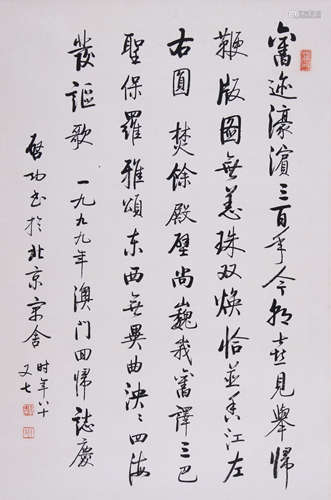 舊迹濠濱三百年今朝喜見舉歸
鞭版圖無恙珠双煥恰並香江左
右圓 焚餘殿壁尚巍峩舊譯三巴
聖保羅雅頌东西無異曲泱〻四海
發謳歌 一九九九年澳门回歸誌慶
啓功书於北京寓舍 时年八十
又七